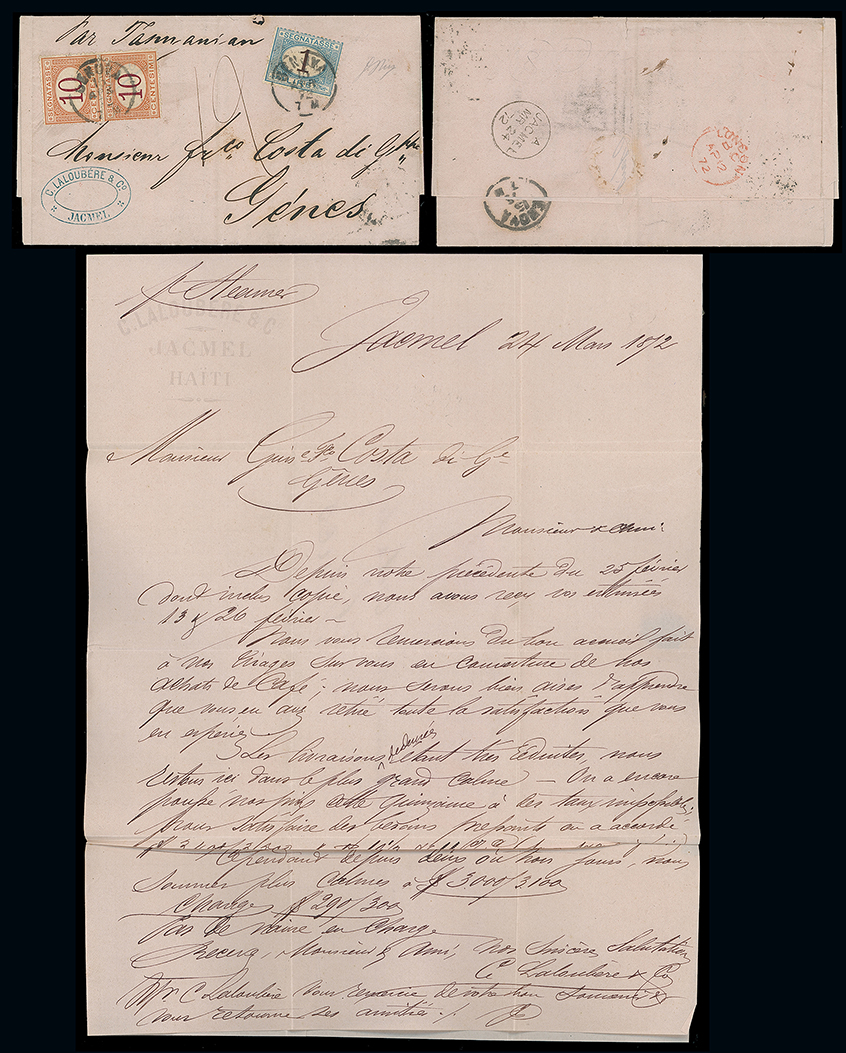 Par Tasmanian
SEGNATASSE
10 10
CENTESIMI
SEGNATASSE
1
GENOVA
Monsieur frco Costa di Gppe
Gênes
19
C. LALOUBÈRE & Co
JACMEL
JACMEL A
MR 24
72
LONDON
AP 12
72
GENOVA
p Steamer
C. LALOUBÈRE & Co
JACMEL
HAÏTI
Jacmel 24 Mars 1872
Monsieur Costa di Gpe
Gênes
Monsieur & ami:
Depuis notre précédente du 25 février
dont inclus copie, nous avons reçu vos estimées
13 & 26 février
Nous vous remercions du bon accueil fait
à nos tirages sur vous en couverture de nos
achats de Café; nous serons bien aises d'apprendre
que vous en avez retiré toute la satisfaction que vous
en espériez
Les livraisons étant très réduites, nous
restons ici dans le plus grand calme — On a encore
cette quinzaine à des taux impossibles;
pour satisfaire des besoins pressants on a accordé
Cependant depuis deux ou trois jours, nous
sommes plus calmes à $ 3000/3,100
Change $ 290/300
Pas de navire en Charge
Recevez, Monsieur & Ami, nos Sincères Salutations
C. Laloubère & Co
Mr C. Laloubère vous remercie de votre bon souvenir &
vous retourne ses amitiés